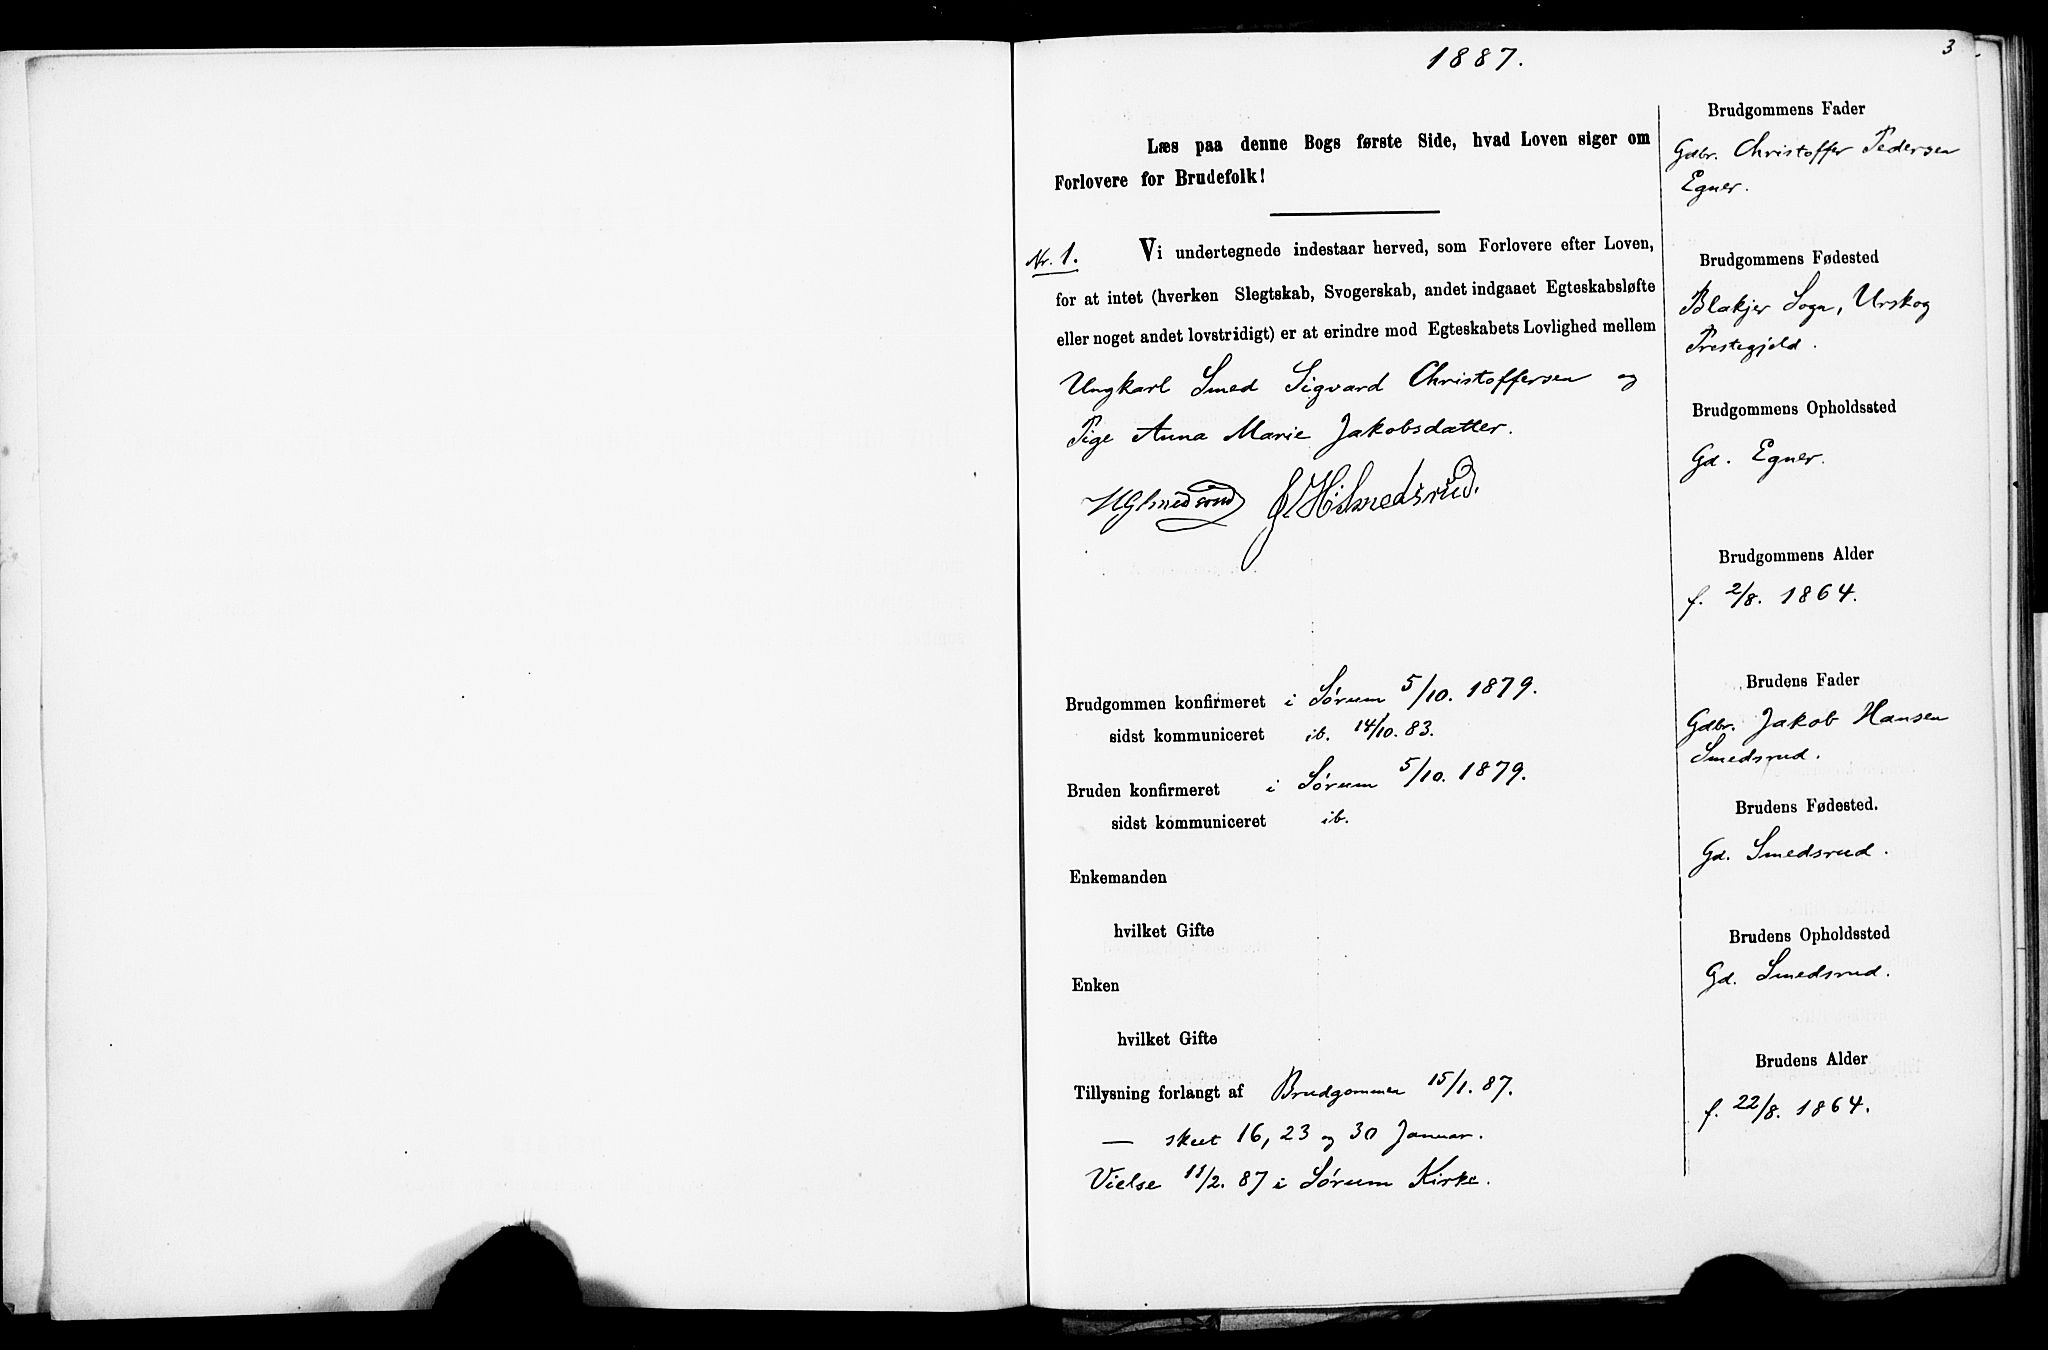 1887.
3
Læs paa denne Bogs første Side, hvad Loven siger om
Forlovere for Brudefolk!
Nr. 1.
Vi undertegnede indestaar herved, som Forlovere efter Loven,
for at intet (hverken Slegtskab, Svogerskab, andet indgaaet Egteskabsløfte
eller noget andet lovstridigt) er at erindre mod Egteskabets Lovlighed mellem
Ungkarl Smed Sigvard Christoffersen og
Pige Anna Marie Jakobsdatter.
J. H. Smedsrud.
Brudgommen konfirmeret i Sørum 5/10. 1879.
sidst kommuniceret ib. 14/10. 83.
Bruden konfirmeret i Sørum 5/10. 1879.
sidst kommuniceret ib.
Enkemanden
hvilket Gifte
Enken
hvilket Gifte
Tillysning forlangt af Brudgommen 15/1. 87.
— skeet 16, 23 og 30 Januar.
Vielse 11/2. 87 i Sørum Kirke.
Brudgommens Fader
Gdbr. Christoffer Pedersen
Egner.
Brudgommens Fødested
Blakjer Sogn, Urskog
Prestegjeld.
Brudgommens Opholdssted
Gd. Egner.
Brudgommens Alder
f. 2/8. 1864.
Brudens Fader
Gdbr. Jakob Hansen
Smedsrud.
Brudens Fødested.
Gd. Smedsrud.
Brudens Opholdssted
Gd. Smedsrud.
Brudens Alder
f. 22/8. 1864.